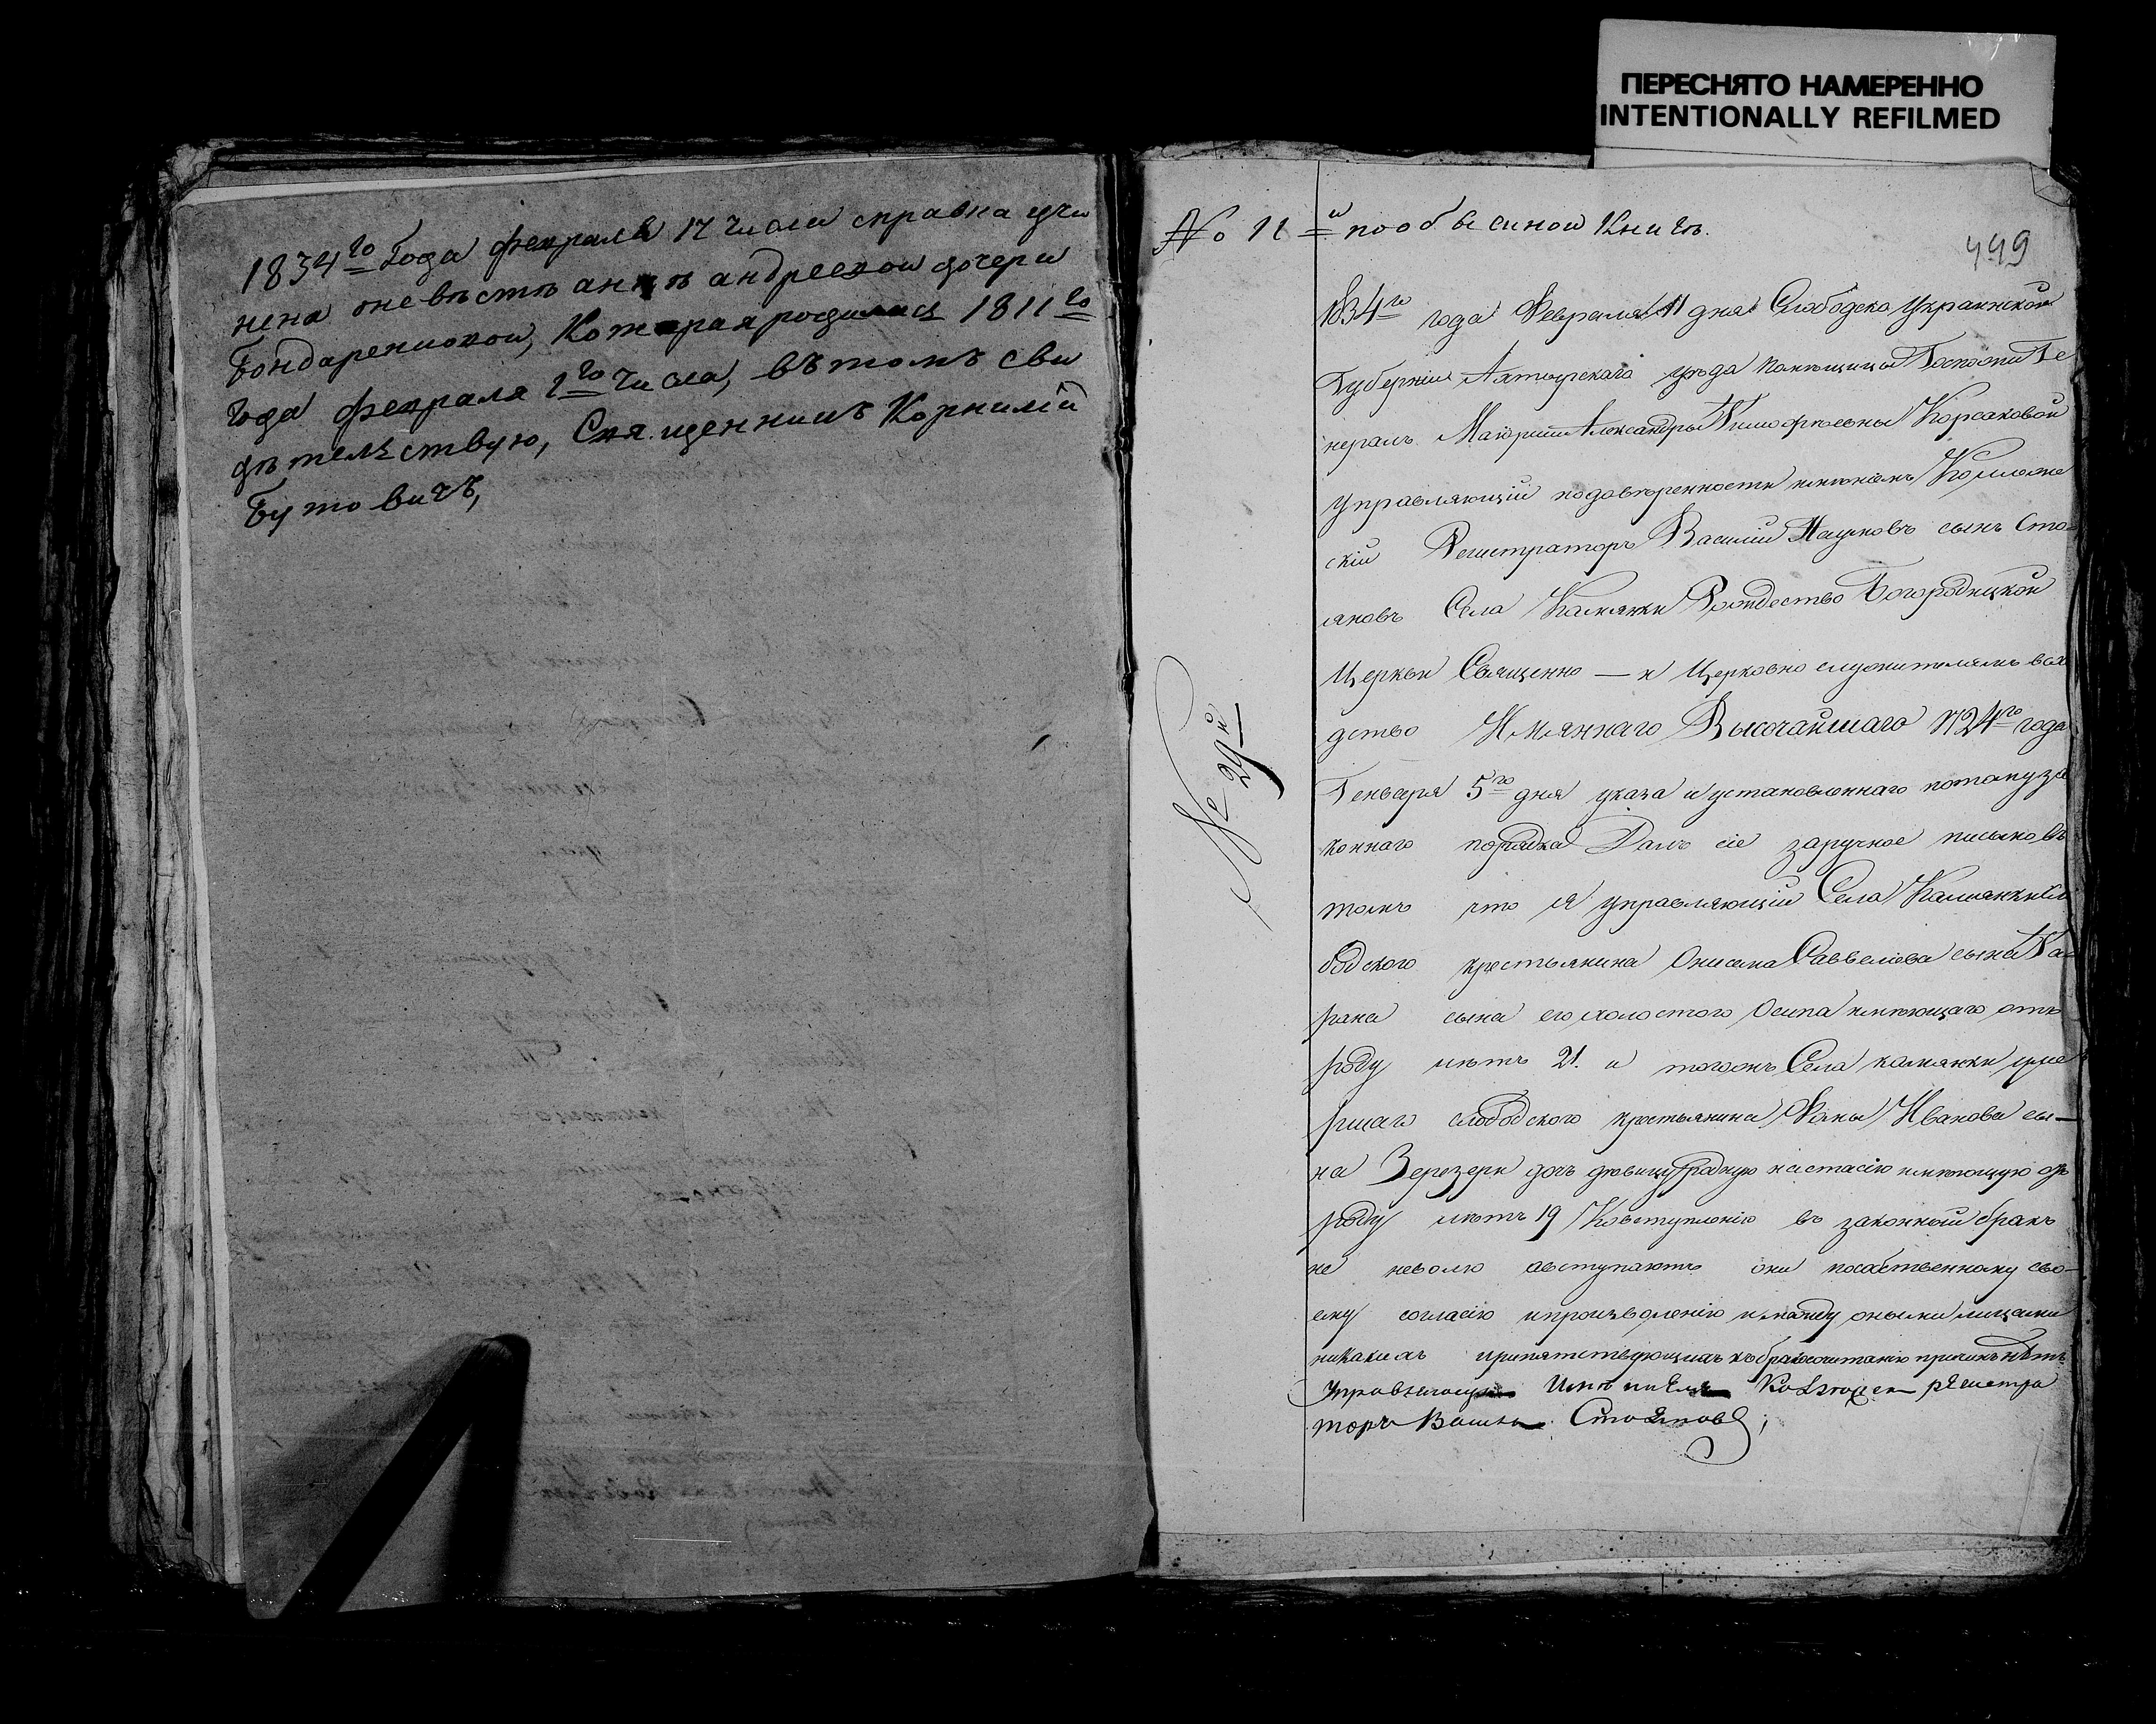 ПЕРЕСНЯТО НАМЕРЕННО
INTENTIONALLY REFILMED
1834го Года февраля 17 числа справка учи
нена оневѣстѣ аннѣ андреевой дочери
Бондаренковой, Которая родилась 1811го
Года февраля 2го числа, вътомъ сви
дѣтельствую, Священникъ Корнилій
Бутовичъ,
№ 11й пообысной Книгѣ.
449
1834го года Февраля 11 дня Слободско Украинской
Губерніи Ахтырскаго уѣзда помѣщицы Госпожи Ге
нералъ Маіорши Александры Тимофѣевны Корсаковой
управляющій подовѣренности имѣніемъ Коллеже
скій Регистраторъ Василій Наумовъ сынъ Сто
яновъ Села Камянки Рождество Богородицкой
Церкви Священно — и Церковно служителямъ въсх
дство Имяннаго Высочайшаго 1724го года
Генваря 5го дня указа и установленнаго потому за
коннаго порядка Далъ сіе заручное письмо въ
томъ что я управляющій Села Камянки сло
бодского крестьянина Онисима Савелієва сына Та
рана сына его холостого Осипа имѣющаго отъ
роду лѣтъ 21. и тогожъ Села камянки уме
ршаго слободского крестьянина Фомы Иванова сы—
на дочь дѣвицу родную настасію имѣющую отъ
роду лѣтъ 19 Ковступленію въ законный бракъ
не неволю авступаютъ они пособственному сво—
ему согласію ипроизволенію имежду оными лицами
никакихъ препятствующихъ къбракосочетанію причинъ нѣтъ
Управляющій Имѣніемъ Колежскій регистра
торъ Василій Стояновъ;
№ 29й